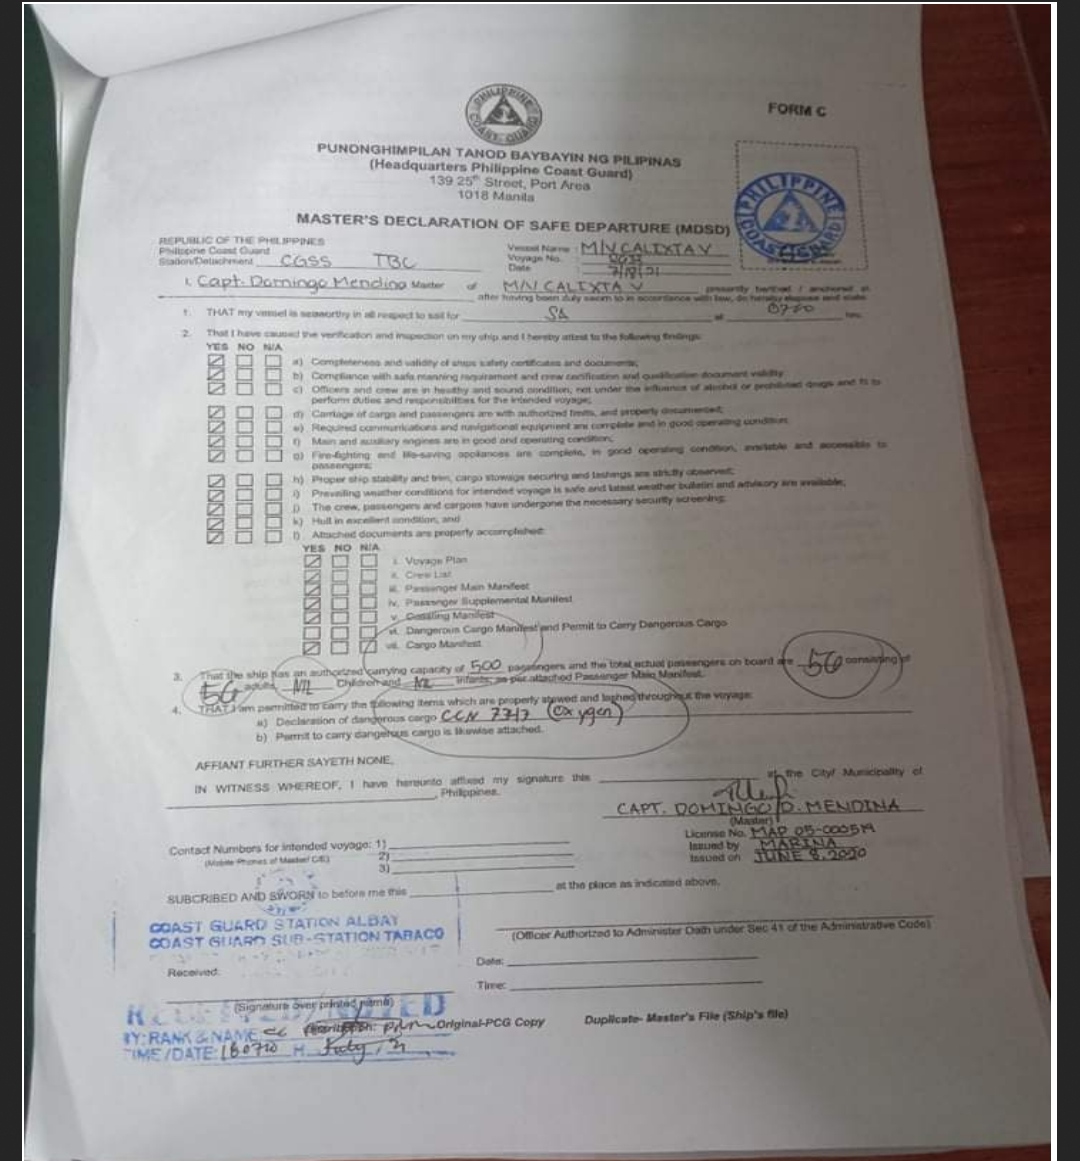 PHILIPPINE COAST GUARD
FORM C
PUNONGHIMPILAN TANOD BAYBAYIN NG PILIPINAS
(Headquarters Philippine Coast Guard)
139 25th Street, Port Area
1018 Manila
PHILIPPINE COAST GUARD
MASTER'S DECLARATION OF SAFE DEPARTURE (MDSD)
REPUBLIC OF THE PHILIPPINES
Philippine Coast Guard
Station/Detachment CGSS TBC
Vessel Name : M/V CALIXTA V
Voyage No. :
Date : 7/18/21
I, Capt. Domingo Mendina Master of M/V CALIXTA V presently berthed / anchored at
after having been duly sworn to in accordance with law, do hereby depose and state
1. THAT my vessel is seaworthy in all respect to sail for SA at 0700 hrs.
2. That I have caused the verification and inspection on my ship and I hereby attest to the following findings:
YES NO N/A
a) Completeness and validity of ships safety certificates and documents;
b) Compliance with safe manning requirement and crew certification and qualification document validity
c) Officers and crew are in healthy and sound condition, not under the influence of alcohol or prohibited drugs and fit to
perform duties and responsibilities for the intended voyage;
d) Carriage of cargo and passengers are with authorized limits, and properly documented;
e) Required communications and navigational equipment are complete and in good operating condition;
f) Main and auxiliary engines are in good and operating condition;
g) Fire-fighting and life-saving appliances are complete, in good operating condition, available and accessible to
passengers;
h) Proper ship stability and trim, cargo stowage securing and lashings are strictly observed;
i) Prevailing weather conditions for intended voyage is safe and latest weather bulletin and advisory are available;
j) The crew, passengers and cargoes have undergone the necessary security screening;
k) Hull in excellent condition, and
l) Attached documents are properly accomplished:
YES NO N/A
i. Voyage Plan
ii. Crew List
iii. Passenger Main Manifest
iv. Passenger Supplemental Manifest
v. Manifest
vi. Dangerous Cargo Manifest and Permit to Carry Dangerous Cargo
vii. Cargo Manifest
3. That the ship has an authorized carrying capacity of 500 passengers and the total actual passengers on board are 56 consisting of
56 adults, NIL Children and NIL Infants; as per attached Passenger Main Manifest.
4. THAT I am permitted to carry the following items which are properly stowed and lashed throughout the voyage:
a) Declaration of dangerous cargo CCN 7317 (Oxygen)
b) Permit to carry dangerous cargo is likewise attached.
AFFIANT FURTHER SAYETH NONE,
IN WITNESS WHEREOF, I have hereunto affixed my signature this at the City/ Municipality of
, Philippines.
CAPT. DOMINGO D. MENDINA
(Master)
License No. MAP 05-000519
Issued by MARINA
Issued on JUNE 8, 2020
Contact Numbers for intended voyage: 1)
(Mobile Phones of Master/ C/E) 2)
3)
SUBCRIBED AND SWORN to before me this at the place as indicated above.
COAST GUARD STATION ALBAY
COAST GUARD SUB-STATION TABACO
(Officer Authorized to Administer Oath under Sec 41 of the Administrative Code)
Date:
Received:
Time:
(Signature over printed name)
BY: RANK & NAME
Original-PCG Copy
Duplicate- Master's File (Ship's file)
TIME/DATE: 180710 H July, 21